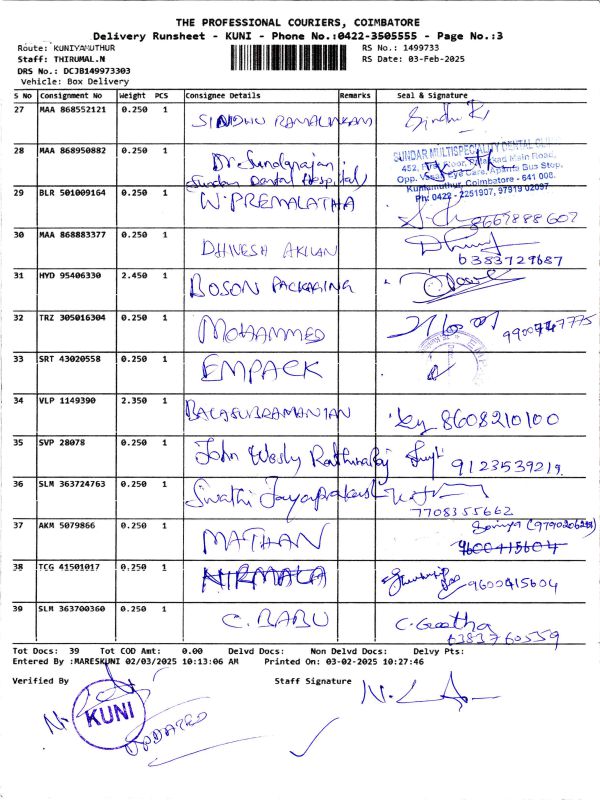 THE PROFESSIONAL COURIERS, COIMBATORE
Delivery Runsheet - KUNI - Phone No.:0422-3505555 - Page No.:3
Route: KUNIYAMUTHUR RS No.: 1499733
Staff: THIRUMAL.N RS Date: 03-Feb-2025
DRS No.: DCJB149973303
Vehicle: Box Delivery
S No Consignment No Weight PCS Consignee Details Remarks Seal & Signature
27 MAA 868552121 0.250 1 SINDHU RAMALINGAM Sindhu R
28 MAA 868950882 0.250 1 Dr. Sundararajan
(Sundar Dental Hospital)
SUNDAR MULTISPECIALITY DENTAL CLINIC
Main Road,
Opp. Vasan Eye Care, Apartts Bus Stop,
Kuniamuthur, Coimbatore - 641 008.
Ph: 0422 - 2251907, 97919 02097
29 BLR 501009164 0.250 1 W. PREMALATHA 8667888607
30 MAA 868883377 0.250 1 DHINESH AKILAN 6383729687
31 HYD 95406330 2.450 1 BOSON PACKAGING
32 TRZ 305016304 0.250 1 MOHAMMED 9900747775
33 SRT 43020558 0.250 1 EMPACK
34 VLP 1149390 2.350 1 BALASUBRAMANIAN 8608210100
35 SVP 28078 0.250 1 John Wesly Rathinaraj 9123539219
36 SLM 363724763 0.250 1 Swathi Jayaprakash 7708355662
37 AKM 5079866 0.250 1 MATHAN
9600415604
38 TCG 41501017 0.250 1 NIRMALA 9600415604
39 SLM 363700360 0.250 1 C. BABU C. Geetha
6383760559
Tot Docs: 39 Tot COD Amt: 0.00 Delvd Docs: Non Delvd Docs: Delvy Pts:
Entered By :MARESKUNI 02/03/2025 10:13:06 AM Printed On: 03-02-2025 10:27:46
Verified By Staff Signature
KUNI
UPDATED